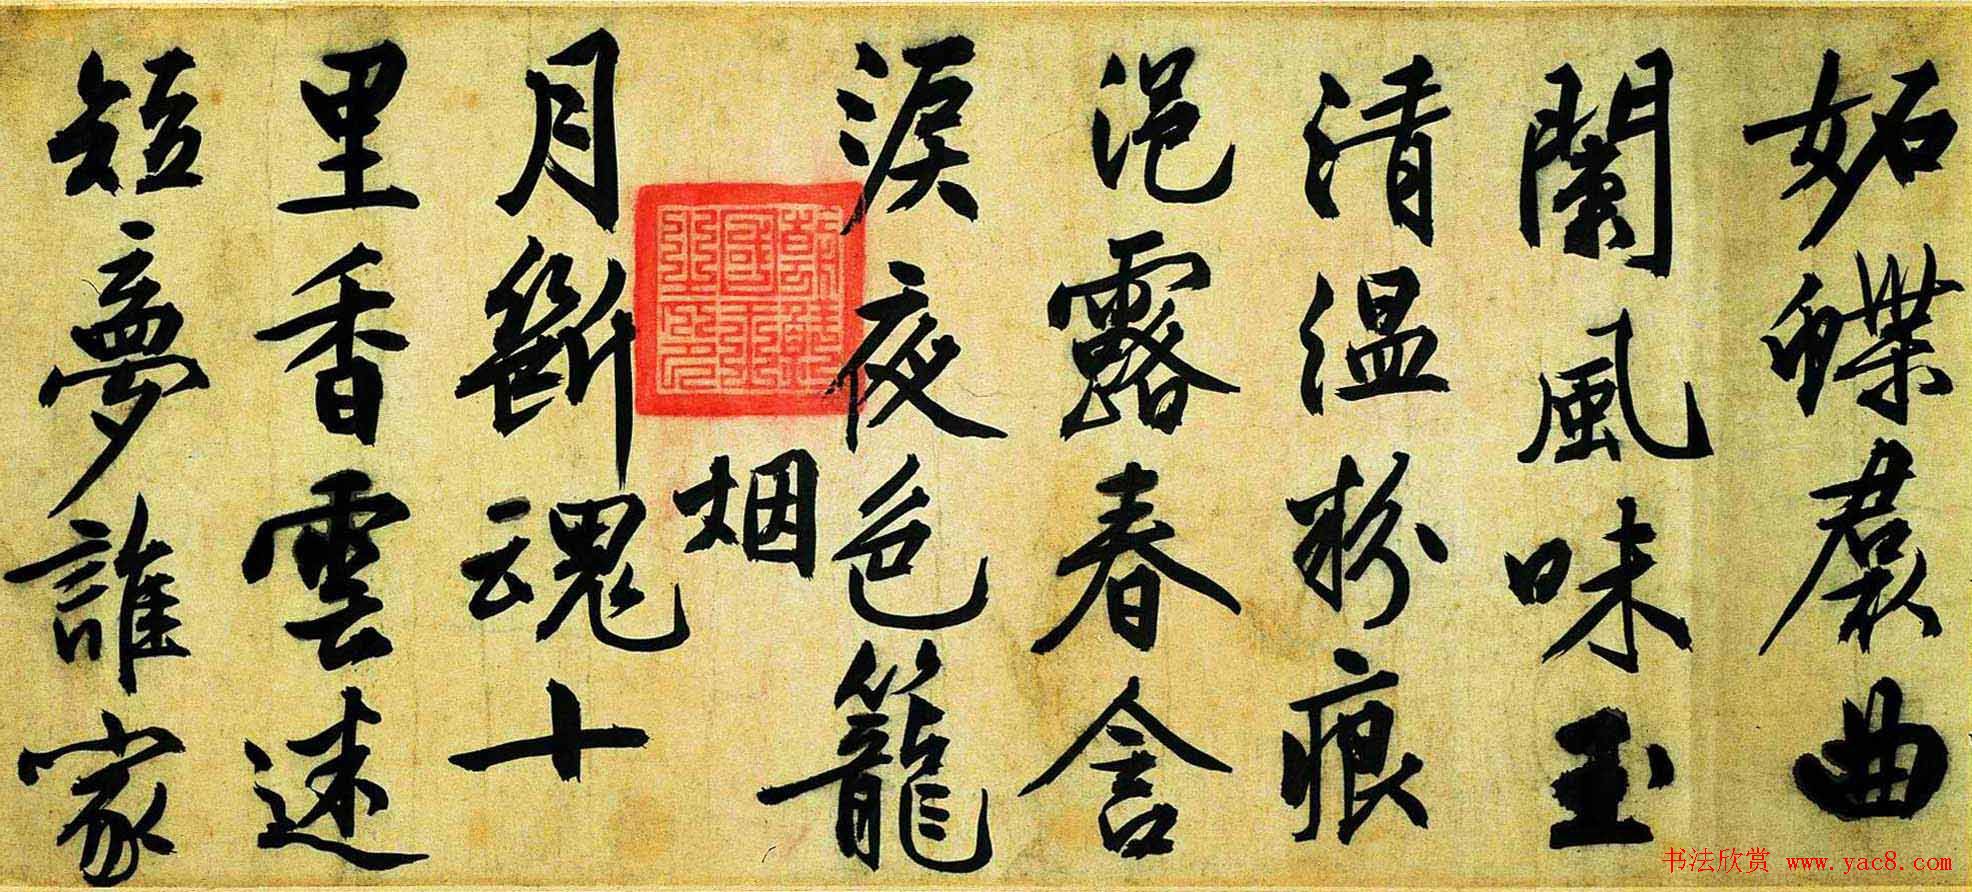 妬蝶裠曲
闌風味玉
清温粉痕
浥露春含
淚夜色籠
烟
月斷魂十
里香雲迷
短夢誰家
书法欣赏 www.yac8.com